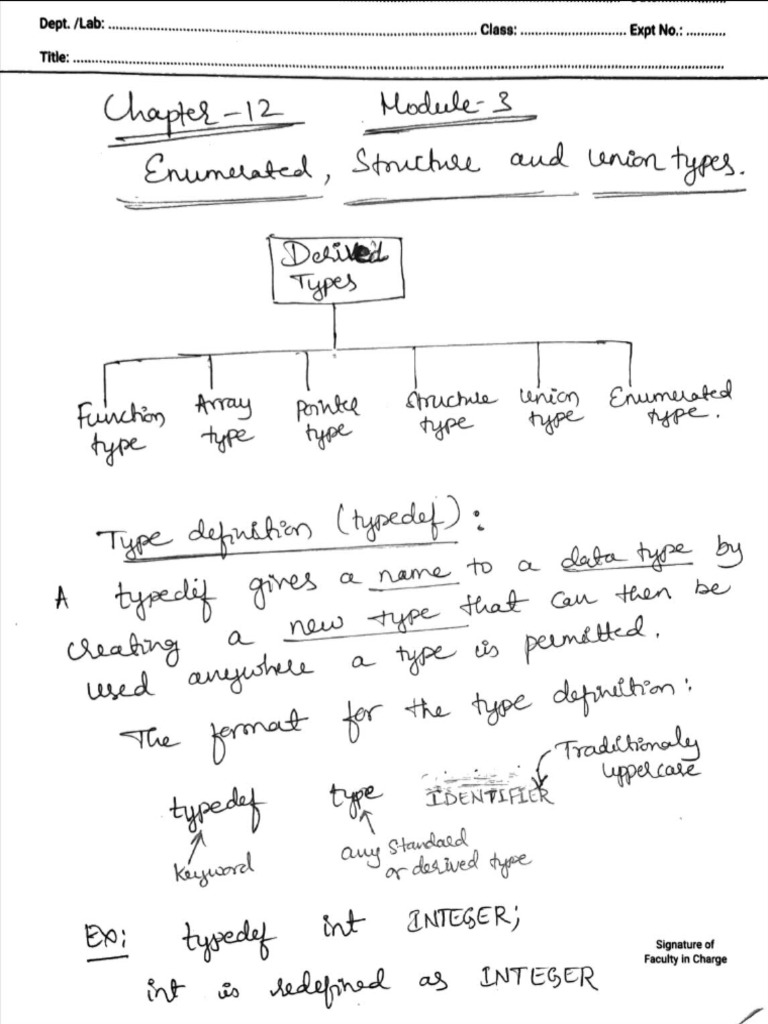 Dept. /Lab: ........ Class: ........ Expt No.: ........
Title: ........
Chapter-12 Module-3
Enumerated, Structure and Union types.
Derived
Types
Function type
Array type
Pointer type
Structure type
Union type
Enumerated type.
Type definition (typedef):
A typedef gives a name to a data type by
creating a new type that can then be
used anywhere a type is permitted.
The format for the type definition:
Traditionaly
uppercase
typedef type IDENTIFIER
keyword
any standard
or derived type
Ex: typedef int INTEGER;
int is redefined as INTEGER
Signature of
Faculty in Charge